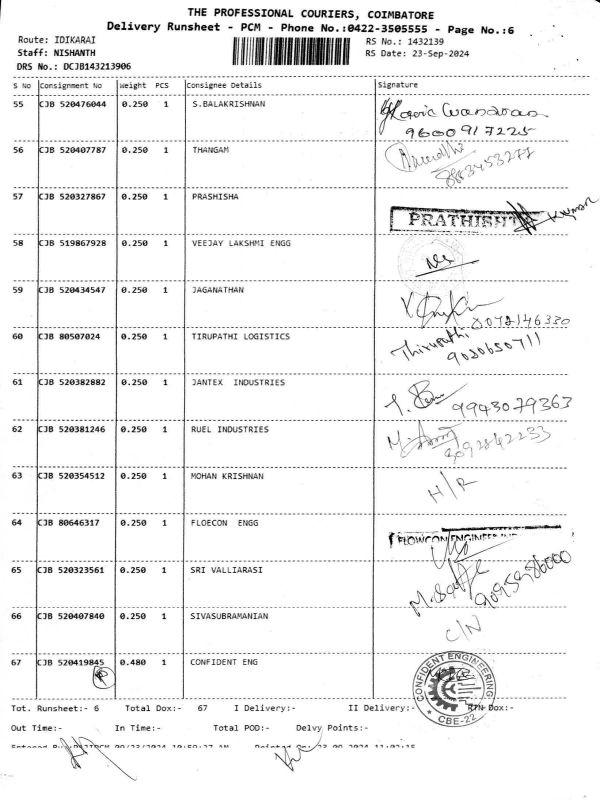 THE PROFESSIONAL COURIERS, COIMBATORE
Delivery Runsheet - PCM - Phone No.:0422-3505555 - Page No.:6
Route: IDIKARAI RS No.: 1432139
Staff: NISHANTH RS Date: 23-Sep-2024
DRS No.: DCJB143213906
S No Consignment No Weight PCS Consignee Details Signature
55 CJB 520476044 0.250 1 S.BALAKRISHNAN
9600917225
56 CJB 520407787 0.250 1 THANGAM
8883453277
57 CJB 520327867 0.250 1 PRASHISHA
PRATHISHT KUMAR
58 CJB 519867928 0.250 1 VEEJAY LAKSHMI ENGG
59 CJB 520434547 0.250 1 JAGANATHAN
8072146330
60 CJB 80507024 0.250 1 TIRUPATHI LOGISTICS Thirupathi
9020650711
61 CJB 520382882 0.250 1 JANTEX INDUSTRIES
9943079363
62 CJB 520381246 0.250 1 RUEL INDUSTRIES
9092842233
63 CJB 520354512 0.250 1 MOHAN KRISHNAN H/R
64 CJB 80646317 0.250 1 FLOECON ENGG
FLOWCON ENGINEERING
65 CJB 520323561 0.250 1 SRI VALLIARASI
9095986000
66 CJB 520407840 0.250 1 SIVASUBRAMANIAN C/N
67 CJB 520419845 0.480 1 CONFIDENT ENG
CONFIDENT ENGINEERING
CBE-22
Tot. Runsheet:- 6 Total Dox:- 67 I Delivery:- II Delivery:- RTN Dox:-
Out Time:- In Time:- Total POD:- Delvy Points:-